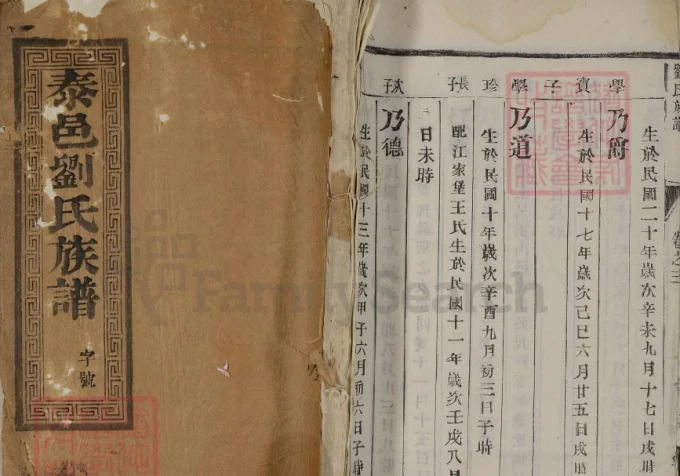 泰邑劉氏族譜
字號
劉氏族譜
卷之
生於民國二十年歲次辛未九月十七日戌時
學寶子
乃爵
生於民國十七年歲次己巳六月廿五日戌時
學珍長子
乃道
生於民國十年歲次辛酉九月初三日子時
配江家堡王氏生於民國十一年歲次壬戌八月
日未時
次子
乃德
生於民國十三年歲次甲子六月初六日子時
FamilySearch